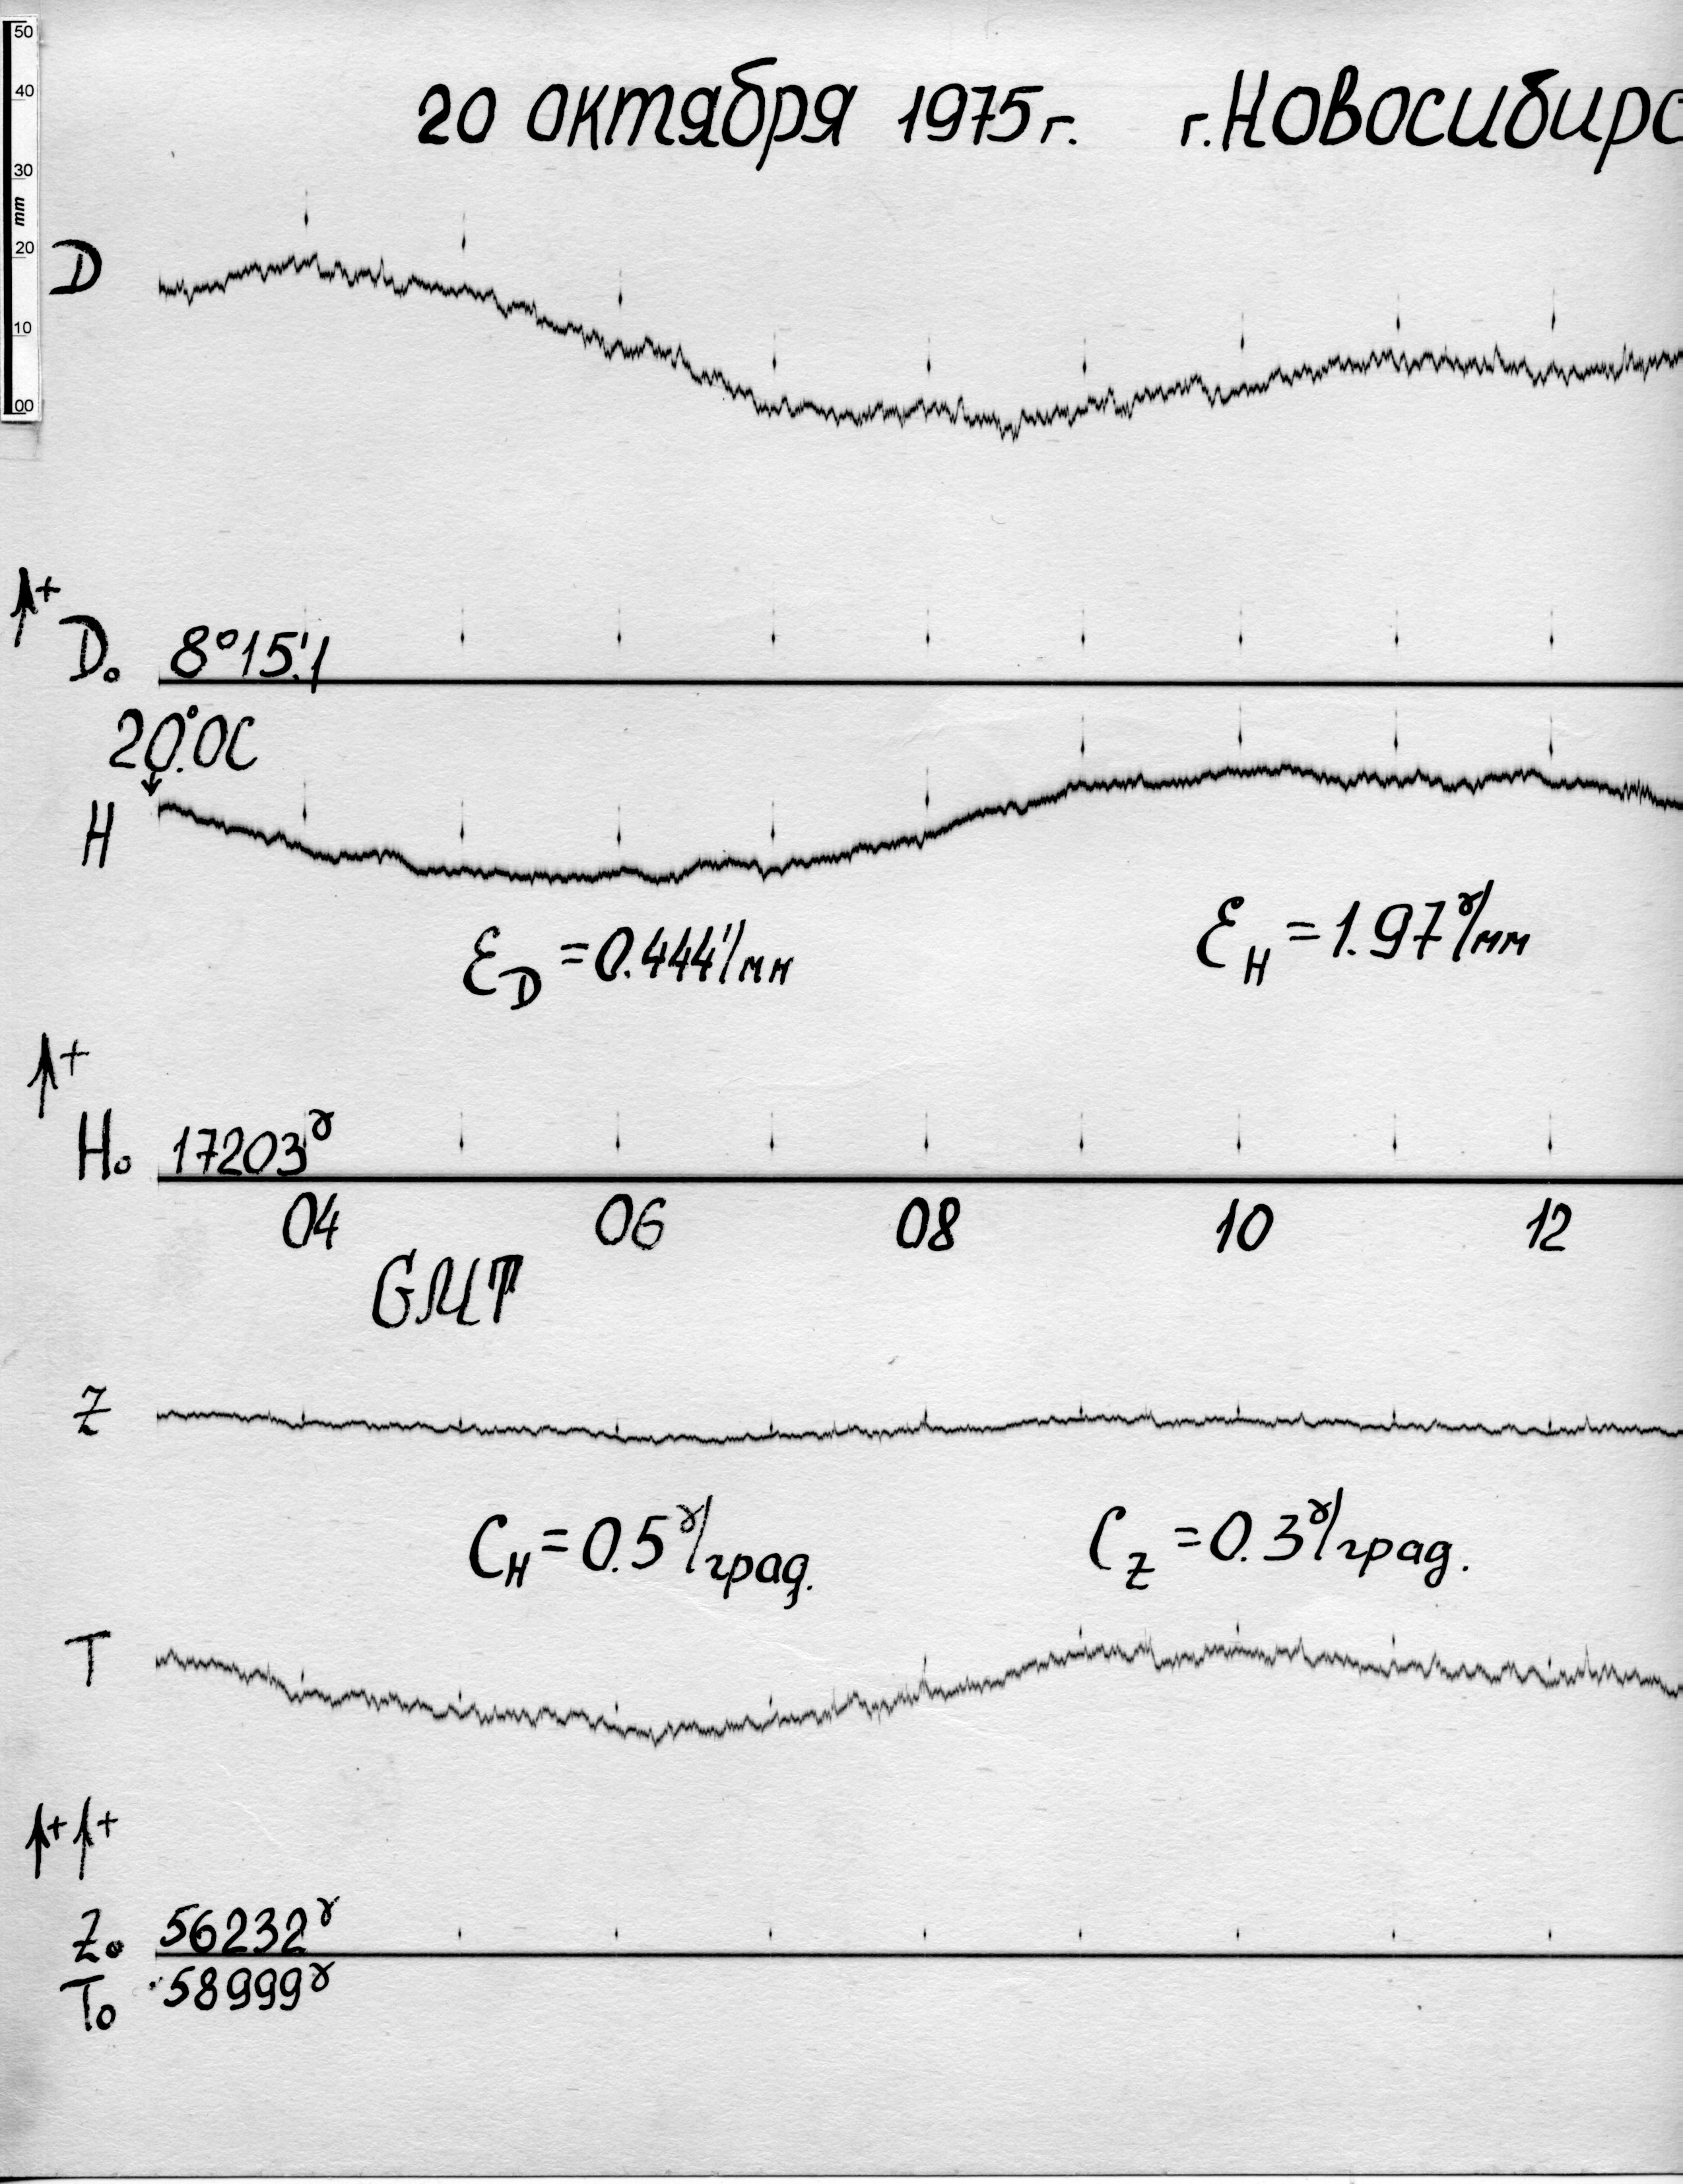 50
40
30
mm
20
10
00
20 октября 1975г. г.Новосибирс
D
↑+
D₀ 8°15.'1
20.°0C
H
ℰD =0.444'/мм
ℰH =1.97ɣ/мм
↑+
H₀ 17203ɣ
04 06 08 10 12
GMT
Z
CH=0.5ɣ/град.
CZ=0.3ɣ/град.
T
↑+↑+
Z₀ 56232ɣ
T₀ 58999ɣ